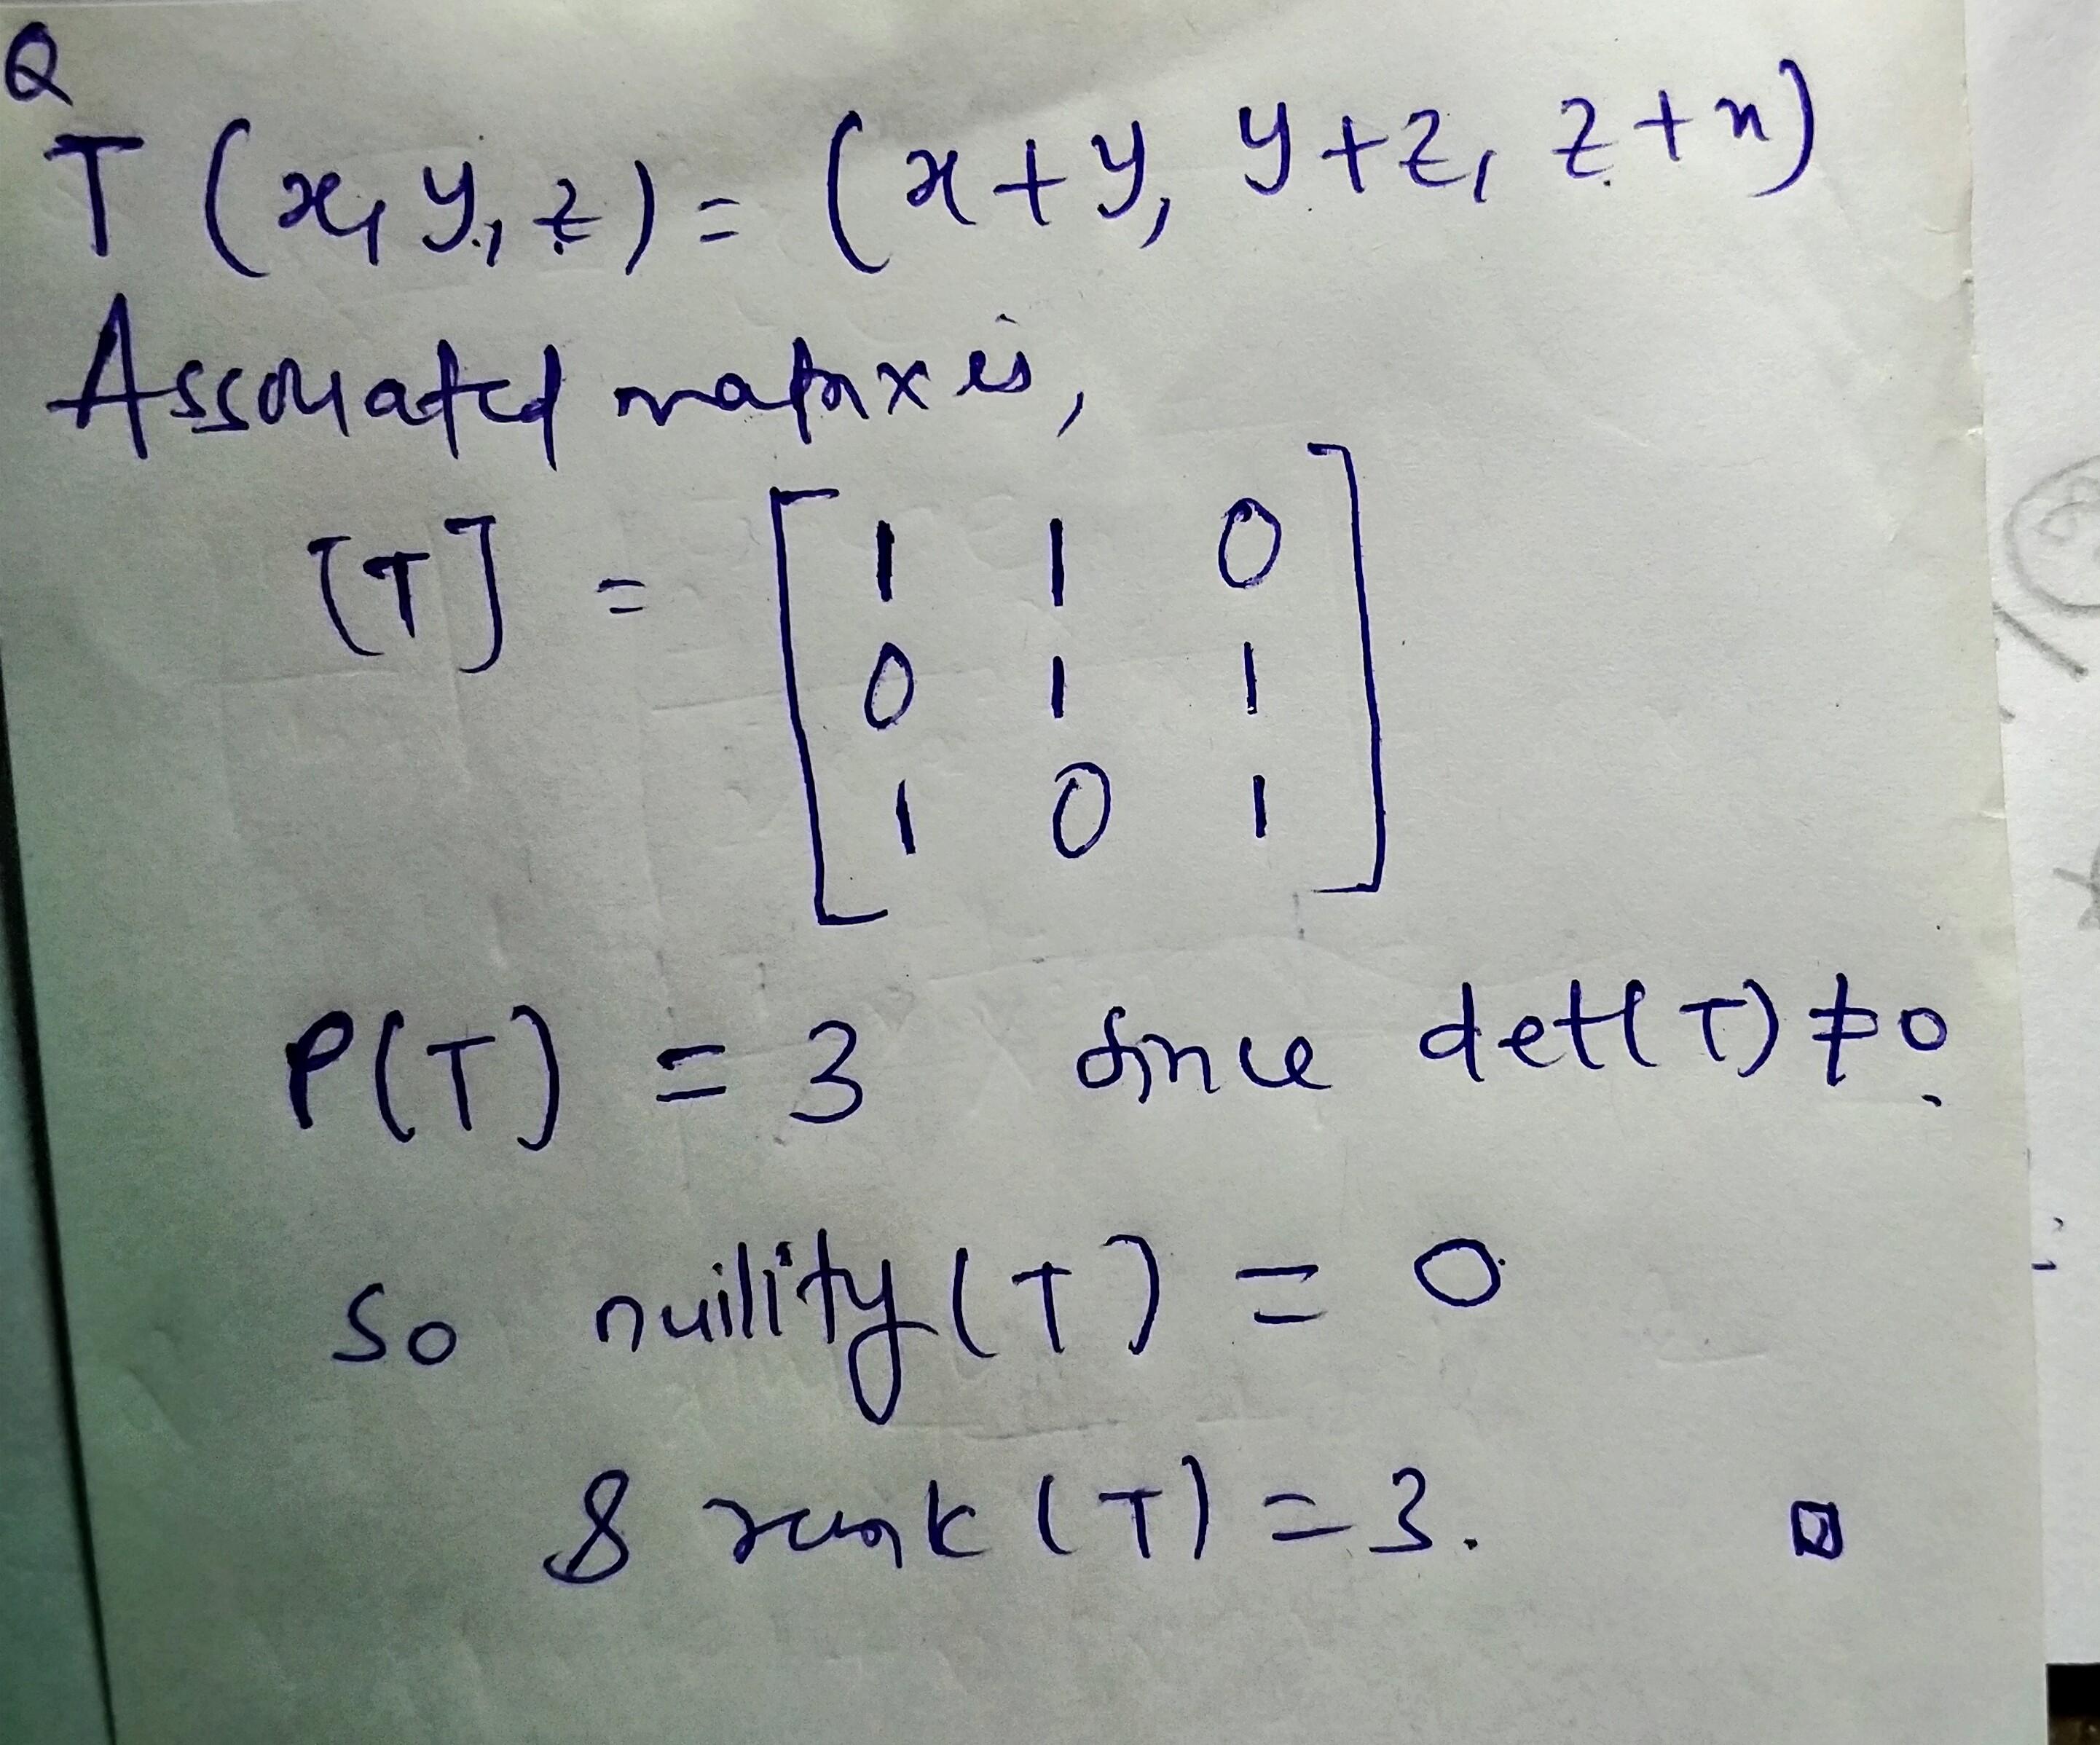 Q
T (x, y, z) = (x+y, y+z, z+x)
Associated matrix is,
[T] = [ 1 1 0
0 1 1
1 0 1 ]
ρ(T) = 3 since det(T) ≠ 0.
So nullity (T) = 0
& rank (T) = 3.